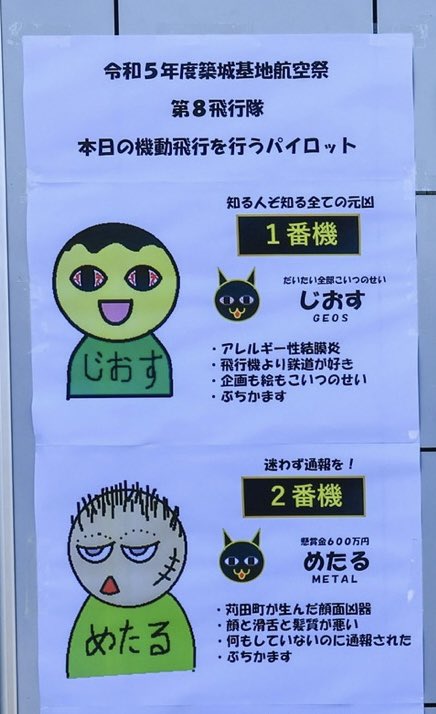 令和５年度築城基地航空祭
第８飛行隊
本日の機動飛行を行うパイロット
知る人ぞ知る全ての元凶
１番機
だいたい全部こいつのせい
じおす
GEOS
じおす
・アレルギー性結膜炎
・飛行機より鉄道が好き
・企画も絵もこいつのせい
・ぶちかます
迷わず通報を！
２番機
懸賞金６００万円
めたる
METAL
めたる
・苅田町が生んだ顔面凶器
・顔と滑舌と髪質が悪い
・何もしていないのに通報された
・ぶちかます